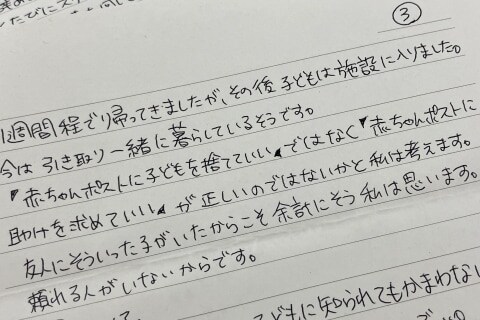 ③
1週間程でり帰ってきましたが、その後子どもは施設に入りました。
今は引き取り一緒に暮らしているそうです。
『赤ちゃんポストに子どもを捨てていい』ではなく『赤ちゃんポストに
助けを求めていい』が正しいのではないかと私は考えます。
友人にそういった子がいたからこそ余計にそう私は思います。
頼れる人がいないからです。
子どもに知られてもかまわない